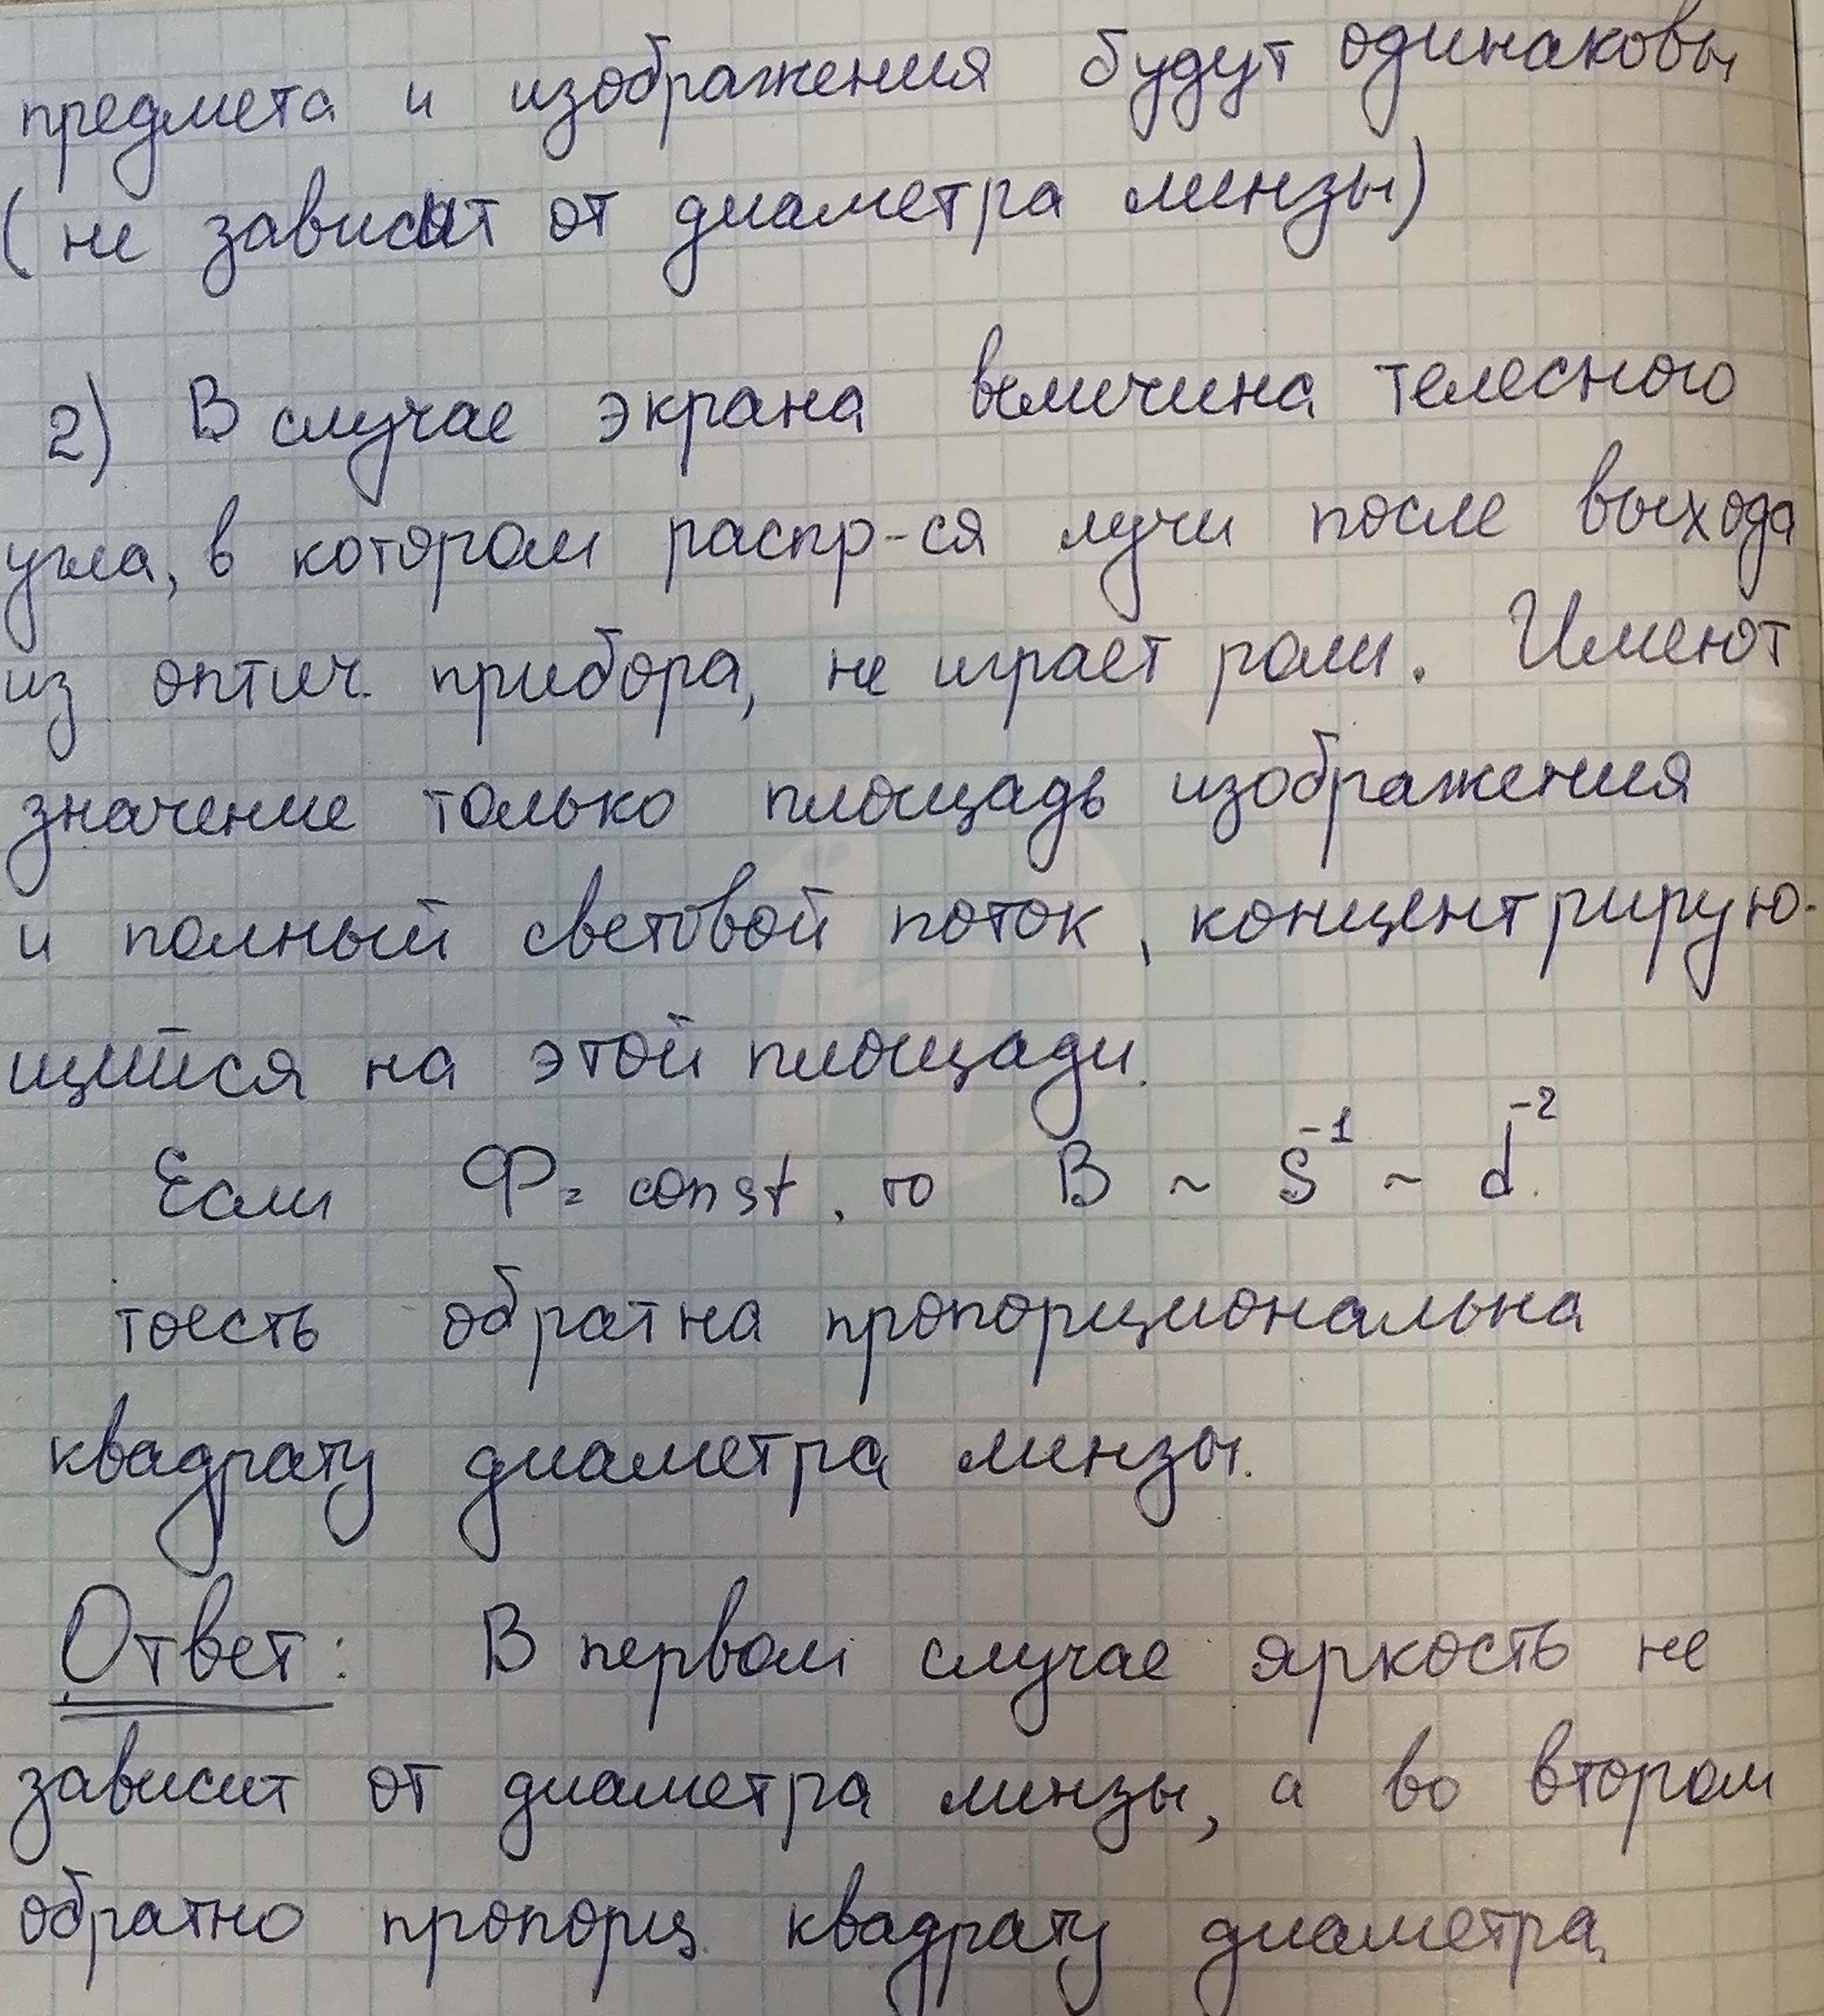 предмета и изображения будут одинаковы
(не зависят от диаметра линзы)
2) В случае экрана величина телесного
угла, в котором распр-ся лучи после выхода
из оптич. прибора, не играет роли. Имеют
значение только площадь изображения
и полный световой поток, концентрирую-
щийся на этой площади.
Если Ф = const, то B ~ S⁻¹ ~ d⁻².
тоесть обратна пропорциональна
квадрату диаметра линзы.
Ответ: В первом случае яркость не
зависит от диаметра линзы, а во втором
обратно пропорц. квадрату диаметра